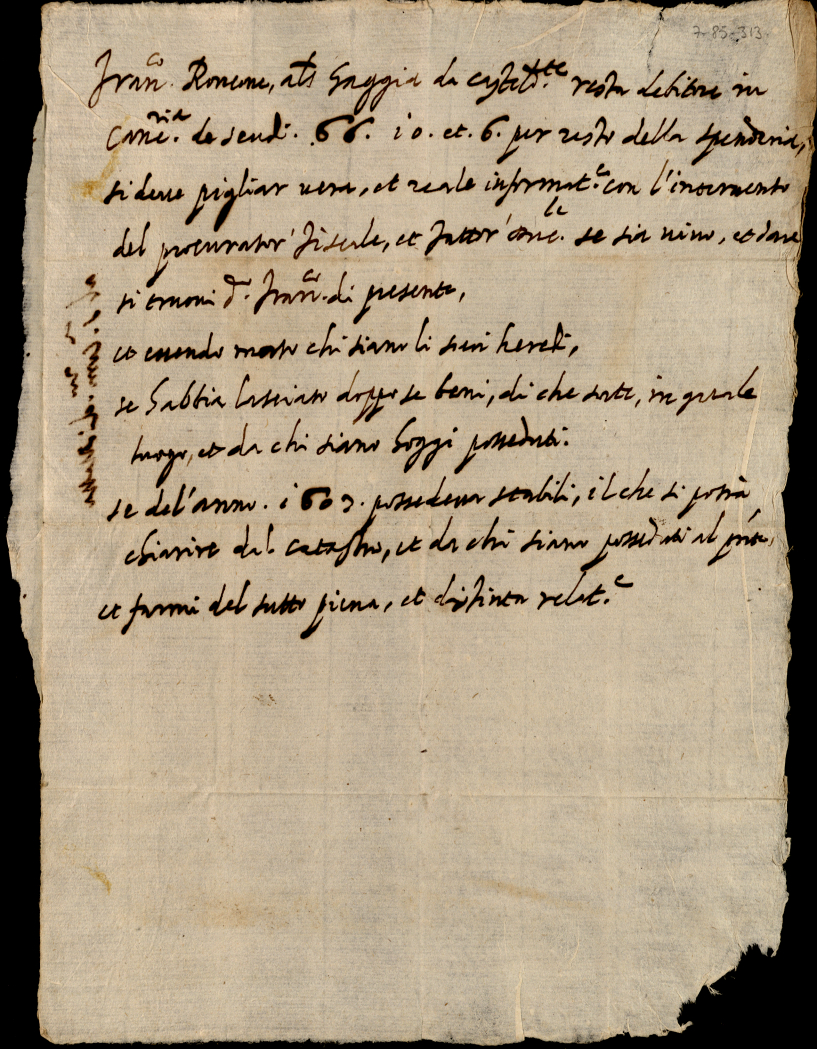 7-85-313
Franco. Roncone, als Gaggia da castelda.te resta debitore in
Canc.ria de scudi. 66. 10. et. 6. per resto della spenderia,
si deve pigliar vera, et reale informat.e con l'intervento
del procurator' fiscale, et fattor' canc.le se sia vivo, et dove
si trovi d.o Franco. di presente,
et essendo morto chi siano li suoi heredi,
se habbia lasciato doppo se beni, di che sorte, in quale
luogo, et da chi siano hoggi posseduti.
se del'anno. 1603. possedeva stabili, il che si potrà
chiarire dal catastro, et da chi siano posseduti al pñte,
et farmi del tutto piena, et distinta relat.e